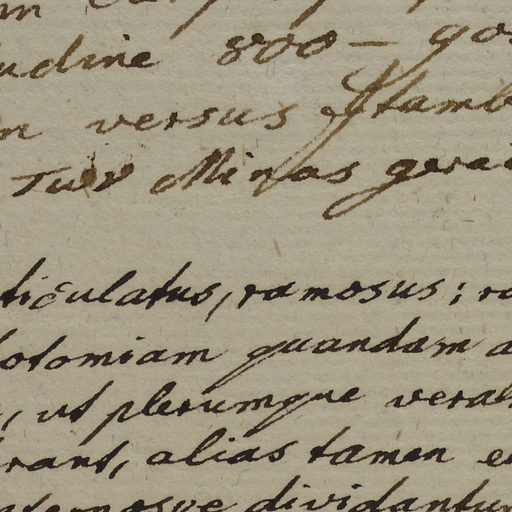 udine 800 – go
n versus Ytamb
Tur Minas gera
ticulatus, ramosus; ra
otomiam quandam a
, ut plerumque
rant, alias tamen e
dividantur